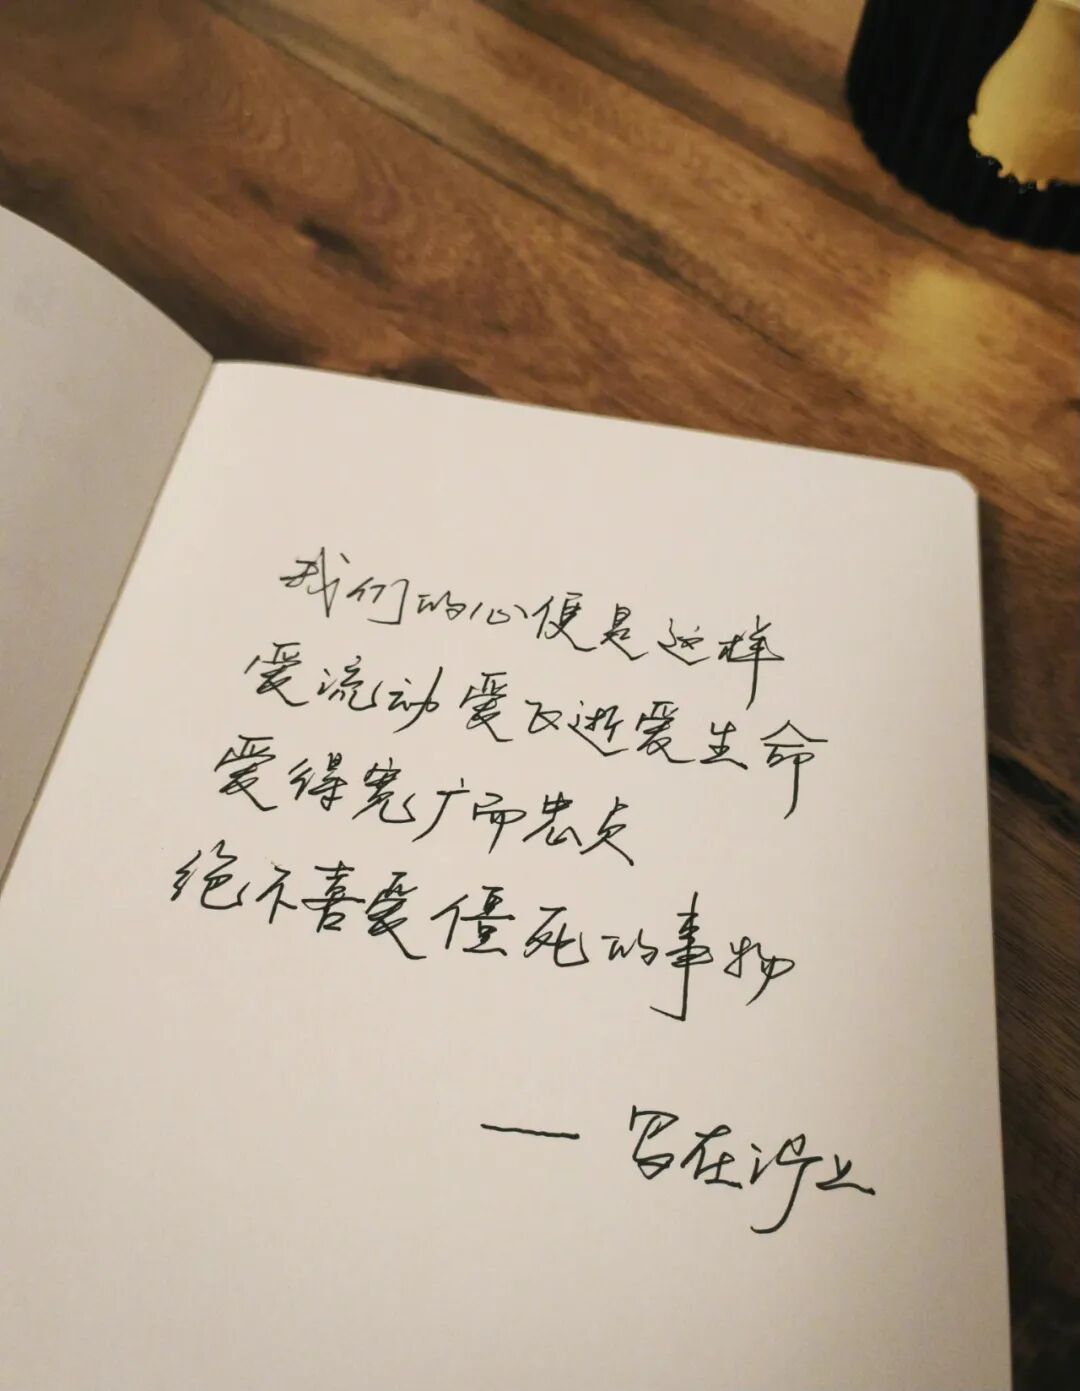 我们的心便是这样
爱流动爱飞逝爱生命
爱得宽广而忠贞
绝不喜爱僵死的事物
—— 写在沙上